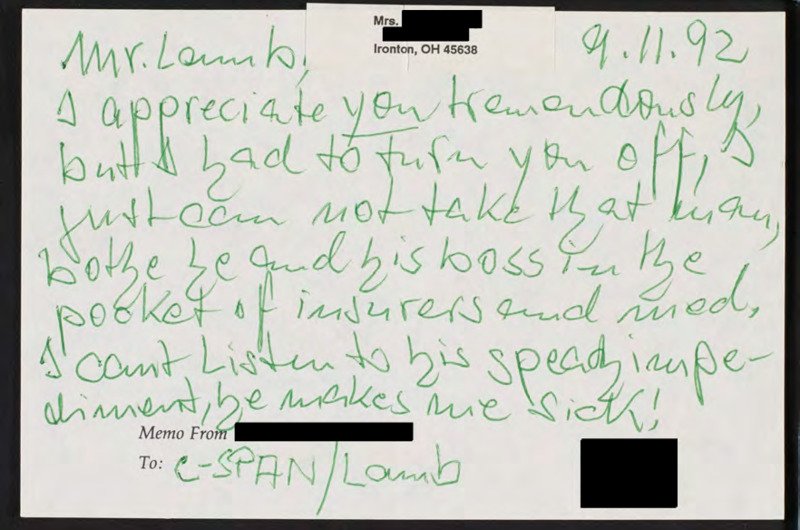 Mrs.
Ironton, OH 45638
9.11.92
Mr. Lamb,
I appreciate you tremendously,
but I had to turn you off, I
just can not take that man,
bothe he and his boss in the
pocket of insurers and med,
I cant Listen to his speach impe-
diment, he makes me sick!
Memo From
To: C-SPAN/Lamb